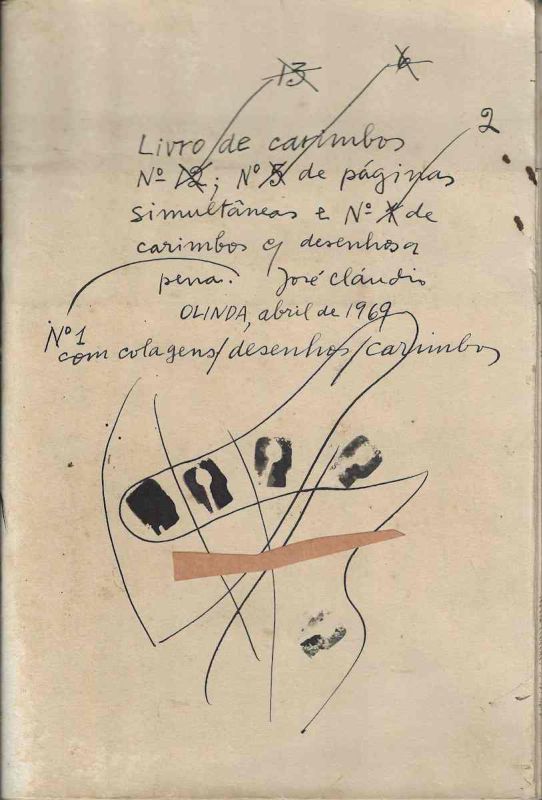 13 6
2
Livro de carimbos
Nº 12; Nº 5 de páginas
simultâneas e Nº 1 de
carimbos c/ desenhos a
pena. José Cláudio
OLINDA, abril de 1969
Nº 1
com colagens/desenhos/carimbos